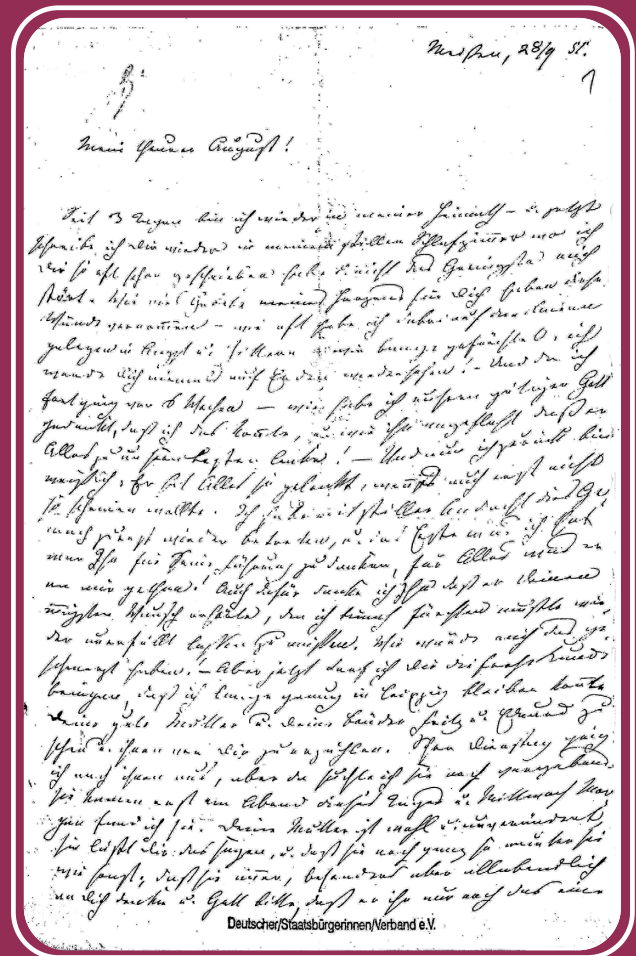 Meißen, 28/9 51.
1
Mein theurer August!
Seit 3 Tagen bin ich wieder in meiner Heimath – u. jetzt
schreibe ich Dir wieder in meinem stillen Schlafzimmer wo ich
Dir so oft schon geschrieben habe u. nicht das Geringste mich
stört. Wie viel Gebete meines Herzens für Dich haben diese
Wände vernommen – wie oft habe ich dabei auf den Knieen
gelegen in Angst u. Zittern u. wie bange gefürchtet, ich
werde Dich niemals auf Erden wiedersehen! – Und da ich
fortging vor 6 Wochen – wie habe ich unsern gütigen Gott
gedankt, daß ich das konnte, u. wie ihn angefleht daß er
Alles zu unserm besten lenke! – Und nun ich zurück bin
weiß ich: Er hat Alles so gelenkt, wenn's auch erst nicht
so scheinen wollte. Ich habe mit stiller Andacht dies Ge-
mach zuerst wieder betreten, u. das Erste was ich that
war Ihm für Seine Führung zu danken, für Alles was er
an mir gethan! Auch dafür danke ich Ihm daß er Deinen
innigsten Wunsch erhörte, den ich kaum fürchten mußte wie-
der unerfüllt lassen zu müssen. Wie würde mich das ge-
schmerzt haben! – Aber jetzt darf ich Dir die frohe Kunde
bringen, daß ich lange genug in Leipzig bleiben konnte
Deine gute Mutter u. Deine Brüder Fritz u. Eduard zu
sehen u. ihnen von Dir zu erzählen. Schon Dienstag ging
ich nach ihnen aus, aber da suchte ich sie noch vergebens
sie kamen erst am Abend dieses Tages u. Mittwoch Mor-
gen fand ich sie. Deine Mutter ist wohl u. unverändert,
sie läßt Dir das sagen, u. daß sie noch ganz so munter sei
wie sonst, daß sie immer, besonders aber allabendlich
an Dich denke u. Gott bitte, daß er ihr nur noch das eine
Deutscher/Staatsbürgerinnen/Verband e.V.